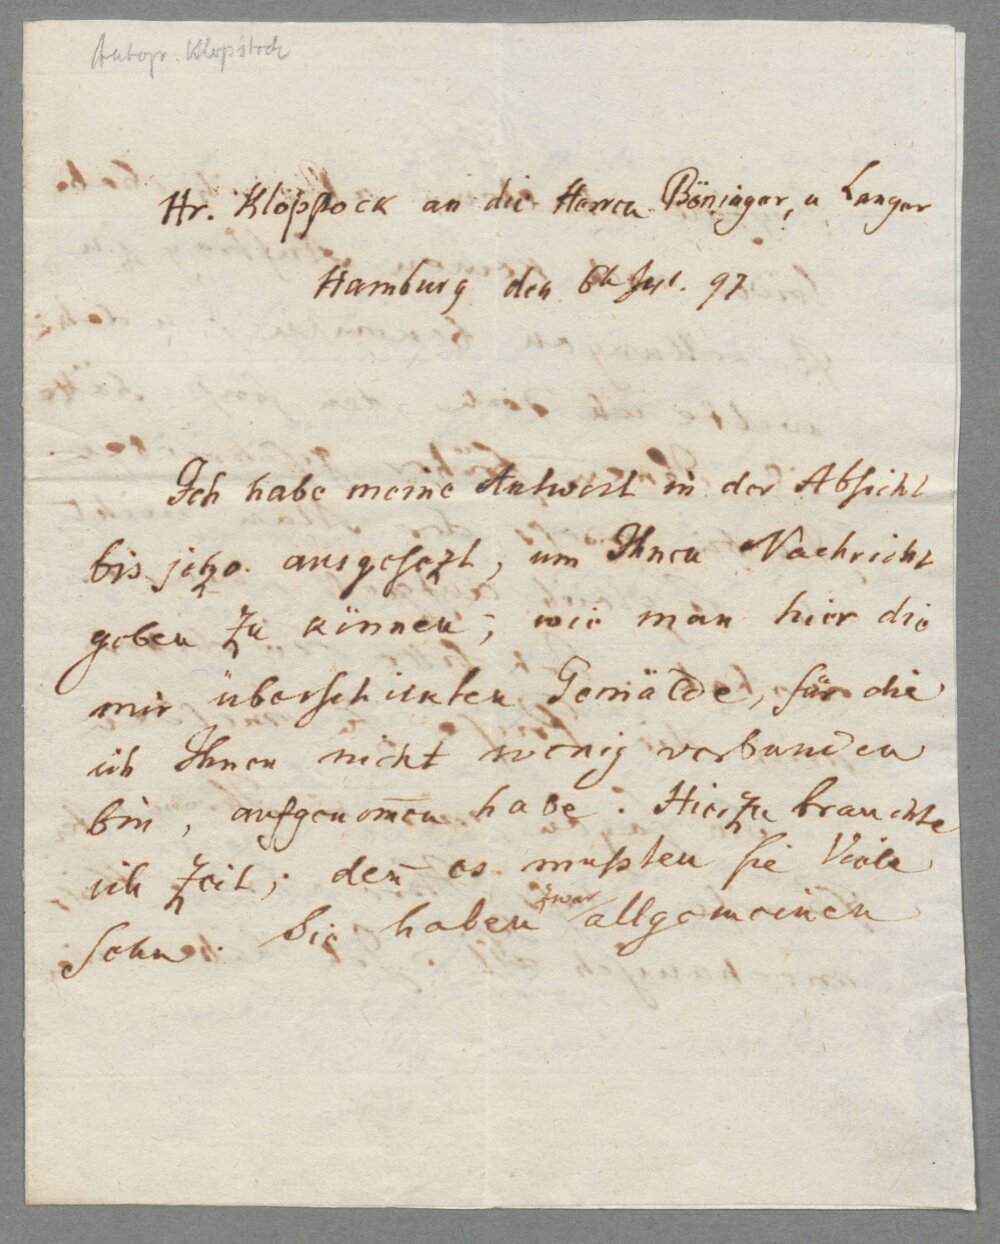 Autogr. Klopstock
Hr. Klopstock an die Herren Böninger, u Langer
Hamburg den 6th Jul. 97
Ich habe meine Antwort in der Absicht
bis jetzo ausgesezt, um Ihnen Nachricht
geben zu können, wie man hier die
mir überschickten Gemälde, für die
ich Ihnen nicht wenig verbunden
bin, aufgenom̄en habe. Hierzu brauchte
ich Zeit; den̄ es mußten sie Viele
zwar
sehn. Sie haben allgemeinen